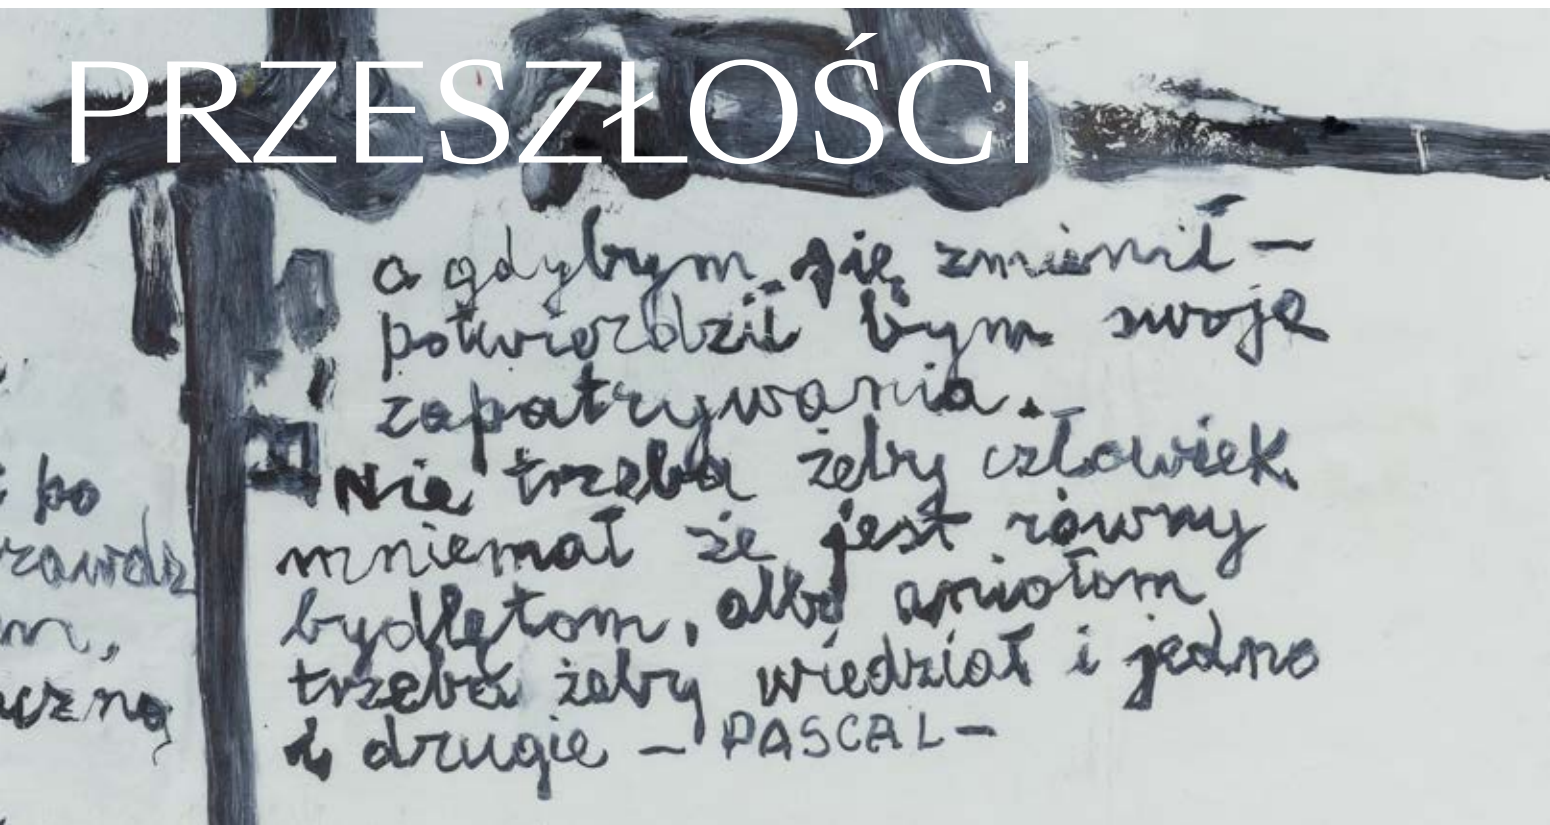 PRZESZŁOŚCI
a gdybym się zmienił –
potwierdził bym swoje
zapatrywania.
Nie trzeba żeby człowiek
mniemał że jest równy
bydlętom, albo aniołom
trzeba żeby wiedział i jedno
i drugie – PASCAL –
bo